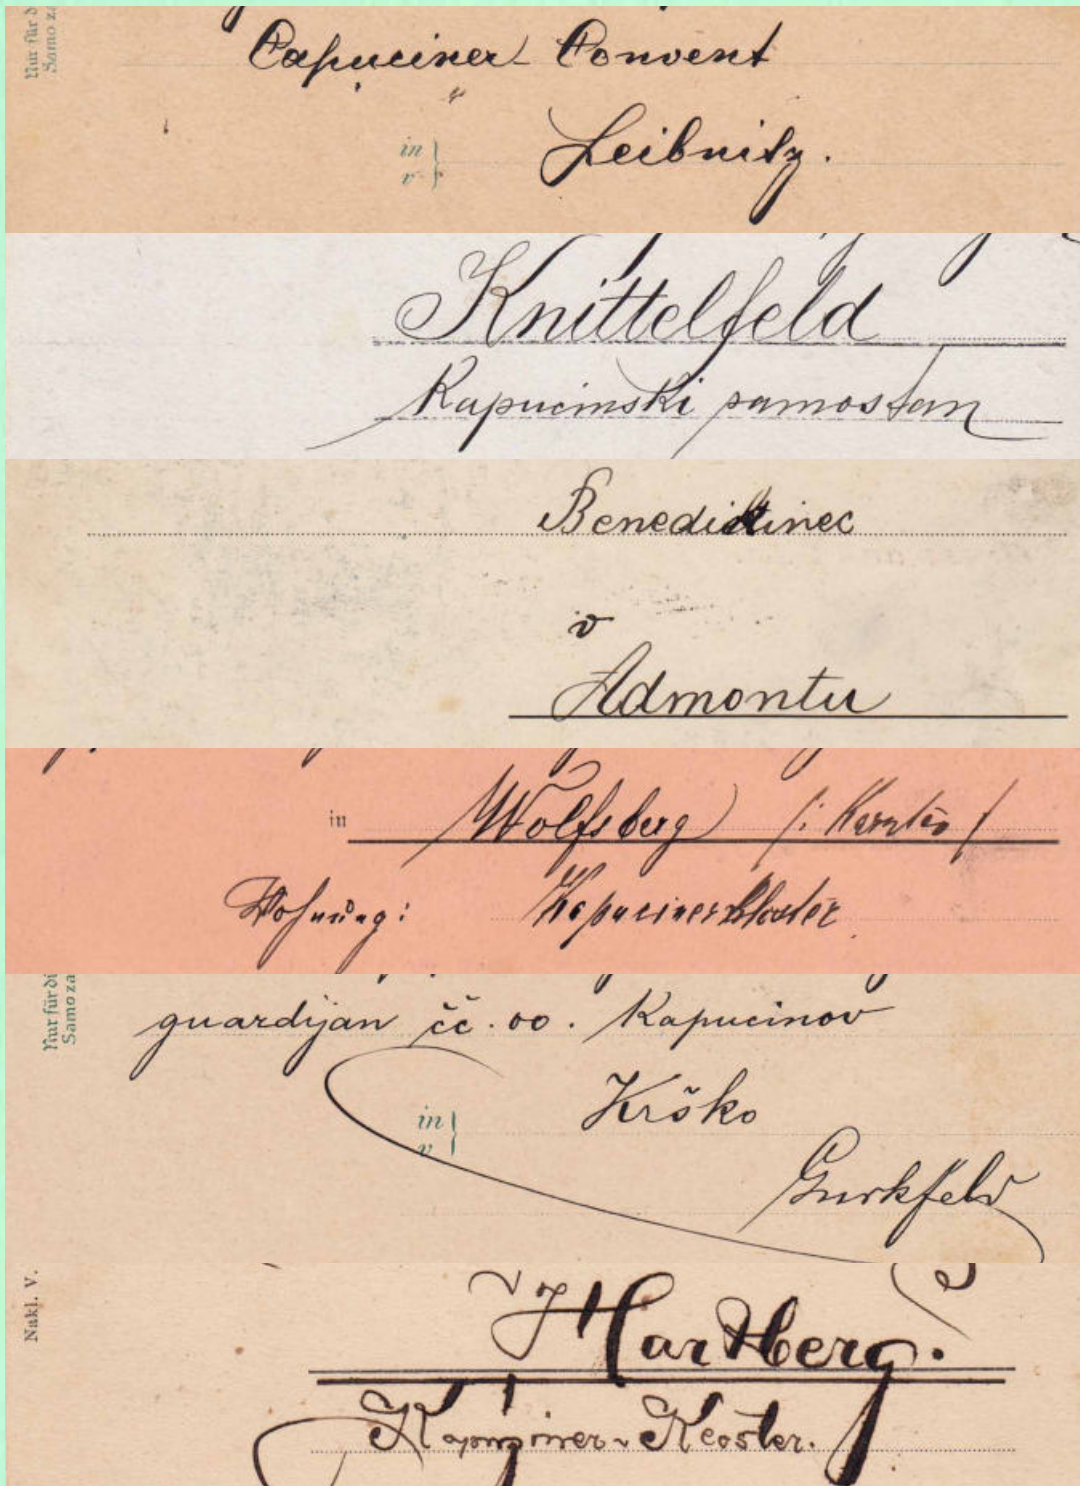 Nur für d
Samo za
Capuciner Convent
in
v
Leibnitz.
Knittelfeld
Kapucinski samostan
Benediktinec
v
Admontu
in Wolfsberg
Wohnung: Kapucinerkloster
Nur für di
Samo za
guardijan čč. oo. Kapucinov
in
v
Krško
Gurkfeld
Nakl. V.
Hartberg.
Kapuziner-Kloster.